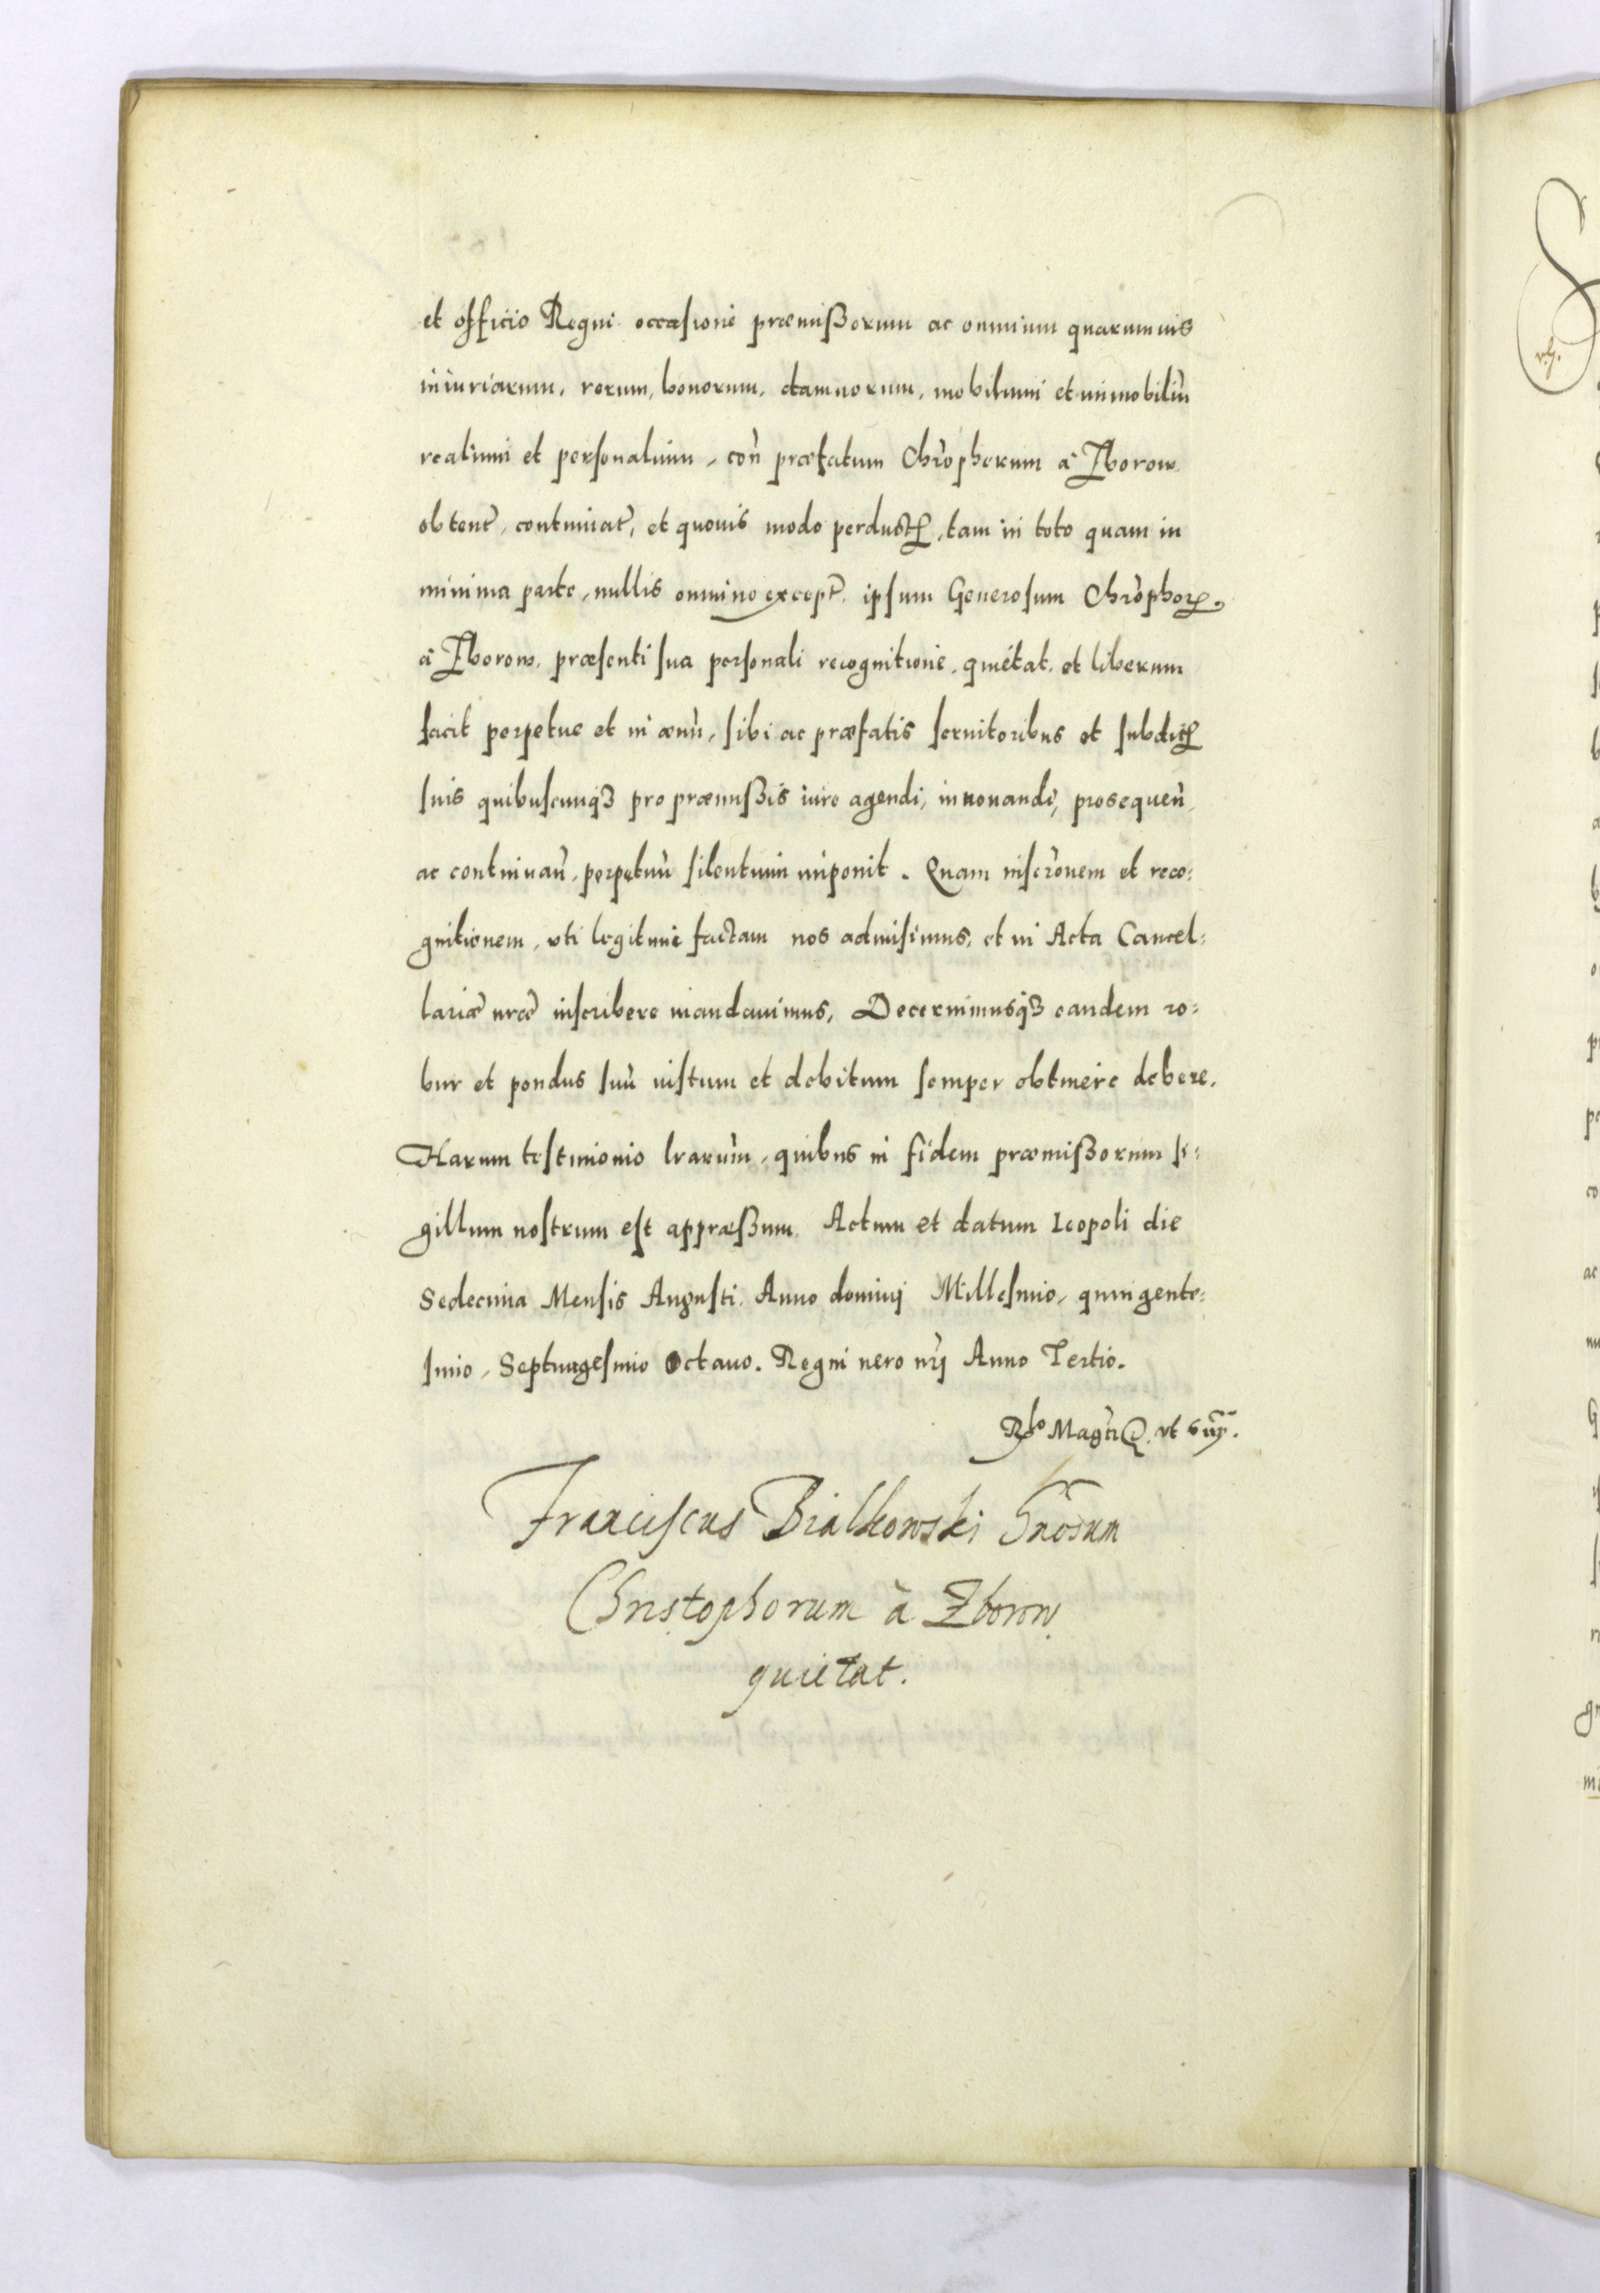 et officio Regni occasione præmißorum ac omnium quarumuis
iniuriarum, rerum, bonorum, damnorum, mobilium et immobiliū
realium et personalium, con̄ præfatum Chrōphorum à Zborow
obtent̄, continuat̄, et quouis modo perduct̄, tam in toto quam in
minima parte, nullis omnino except̄, ipsum Generosum Chrōphor̄,
à Zborow, præsenti sua personali recognitione, quietat, et liberum
facit perpetue et in æuū, sibi ac præfatis seruitoribus et subdit̄
suis quibuscunqȝ pro præmißis iure agendi, innouandi, prosequen̄,
ac continuan̄, perpetuū silentium imponit. Quam inscrōnem et reco:
gnitionem, uti legitime factam nos admisimus, et in Acta Cancel:
lariæ nr̄æ inscribere mandauimus, Decernimusqȝ eandem ro:
bur et pondus suū iustum et debitum semper obtinere debere.
Harum testimonio lr̄arum, quibus in fidem præmißorum si:
gillum nostrum est appræßum. Actum et datum Leopoli die
Sedecima Mensis Augusti, Anno dominj Millesimo, quingente:
simo, Septuagesimo Octauo. Regni uero nr̄j Anno Tertio.
ut
Franciscus Bialkowski Gnōsum
Christophorum à Zborow
quietat.